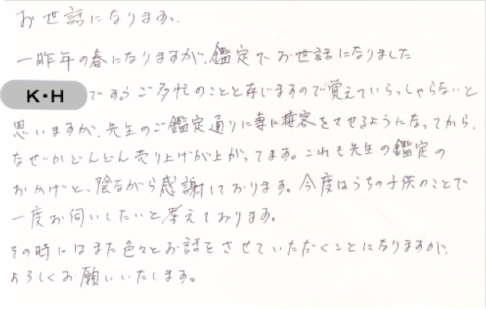 お世話になります。
一昨年の春になりますが、鑑定でお世話になりました
K・H です。ご多忙のことと存じますので覚えていらっしゃらないと
思いますが、先生のご鑑定通りに妻に接客をさせるようになってから、
なぜかどんどん売り上げが上がってます。これも先生の鑑定の
おかげと、陰ながら感謝しております。今度はうちの子供のことで
一度お伺いしたいと考えております。
その時にはまた色々とお話をさせていただくことになりますが、
よろしくお願いいたします。